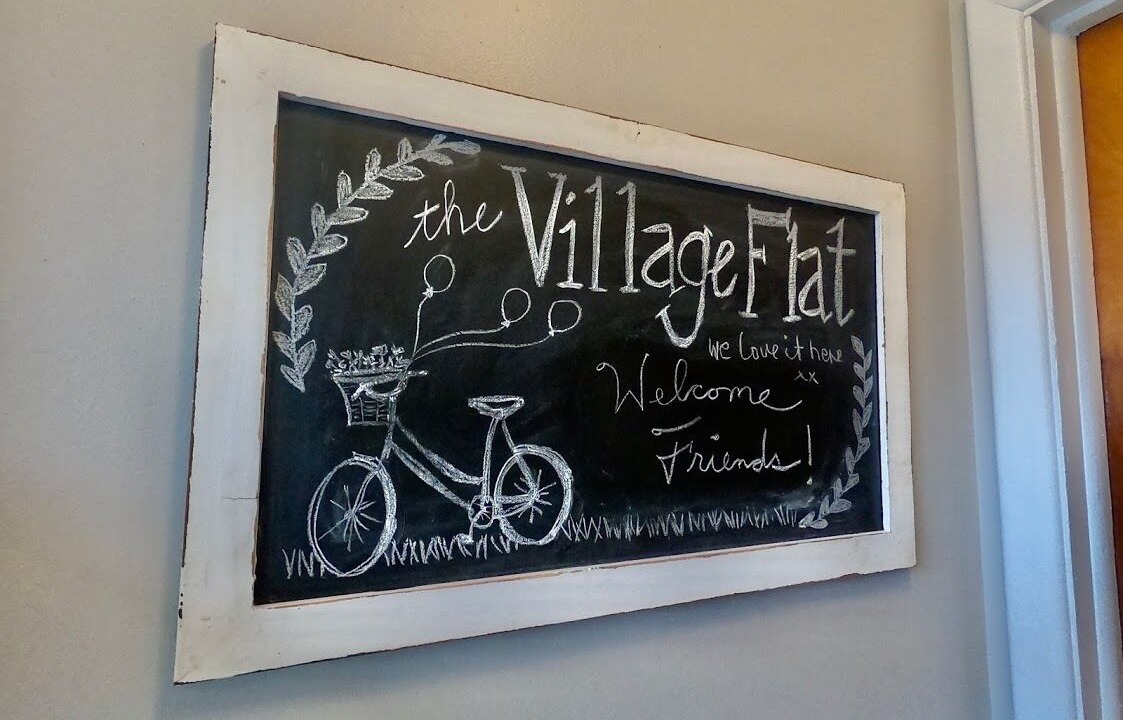 the Village Flat
we love it here
xx
Welcome
Friends!